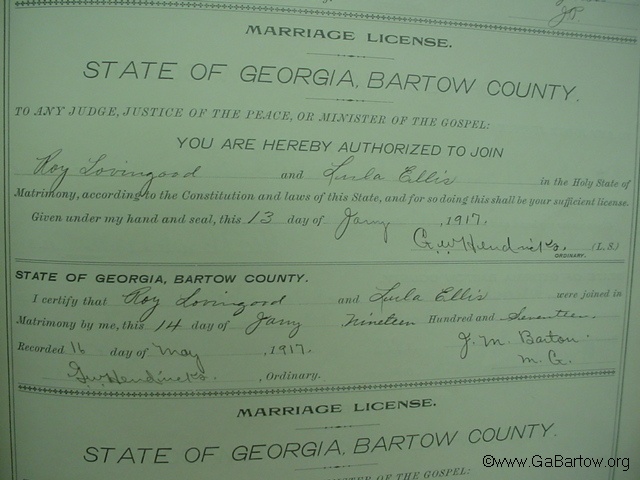 J.P.
MARRIAGE LICENSE.
STATE OF GEORGIA, BARTOW COUNTY.
TO ANY JUDGE, JUSTICE OF THE PEACE, OR MINISTER OF THE GOSPEL:
YOU ARE HEREBY AUTHORIZED TO JOIN
Roy Lovingood and Lula Ellis in the Holy State of
Matrimony, according to the Constitution and laws of this State, and for so doing this shall be your sufficient license.
Given under my hand and seal, this 13 day of Jany, 1917.
G.W. Hendricks. (L. S.)
ORDINARY.
STATE OF GEORGIA, BARTOW COUNTY.
I certify that Roy Lovingood and Lula Ellis were joined in
Matrimony by me, this 14 day of Jany Nineteen Hundred and Seventeen.
J. M. Barton.
Recorded 16 day of May, 1917.
M. G.
G.W. Hendricks. , Ordinary.
MARRIAGE LICENSE.
STATE OF GEORGIA, BARTOW COUNTY.
OF THE GOSPEL:
©www.GaBartow.org